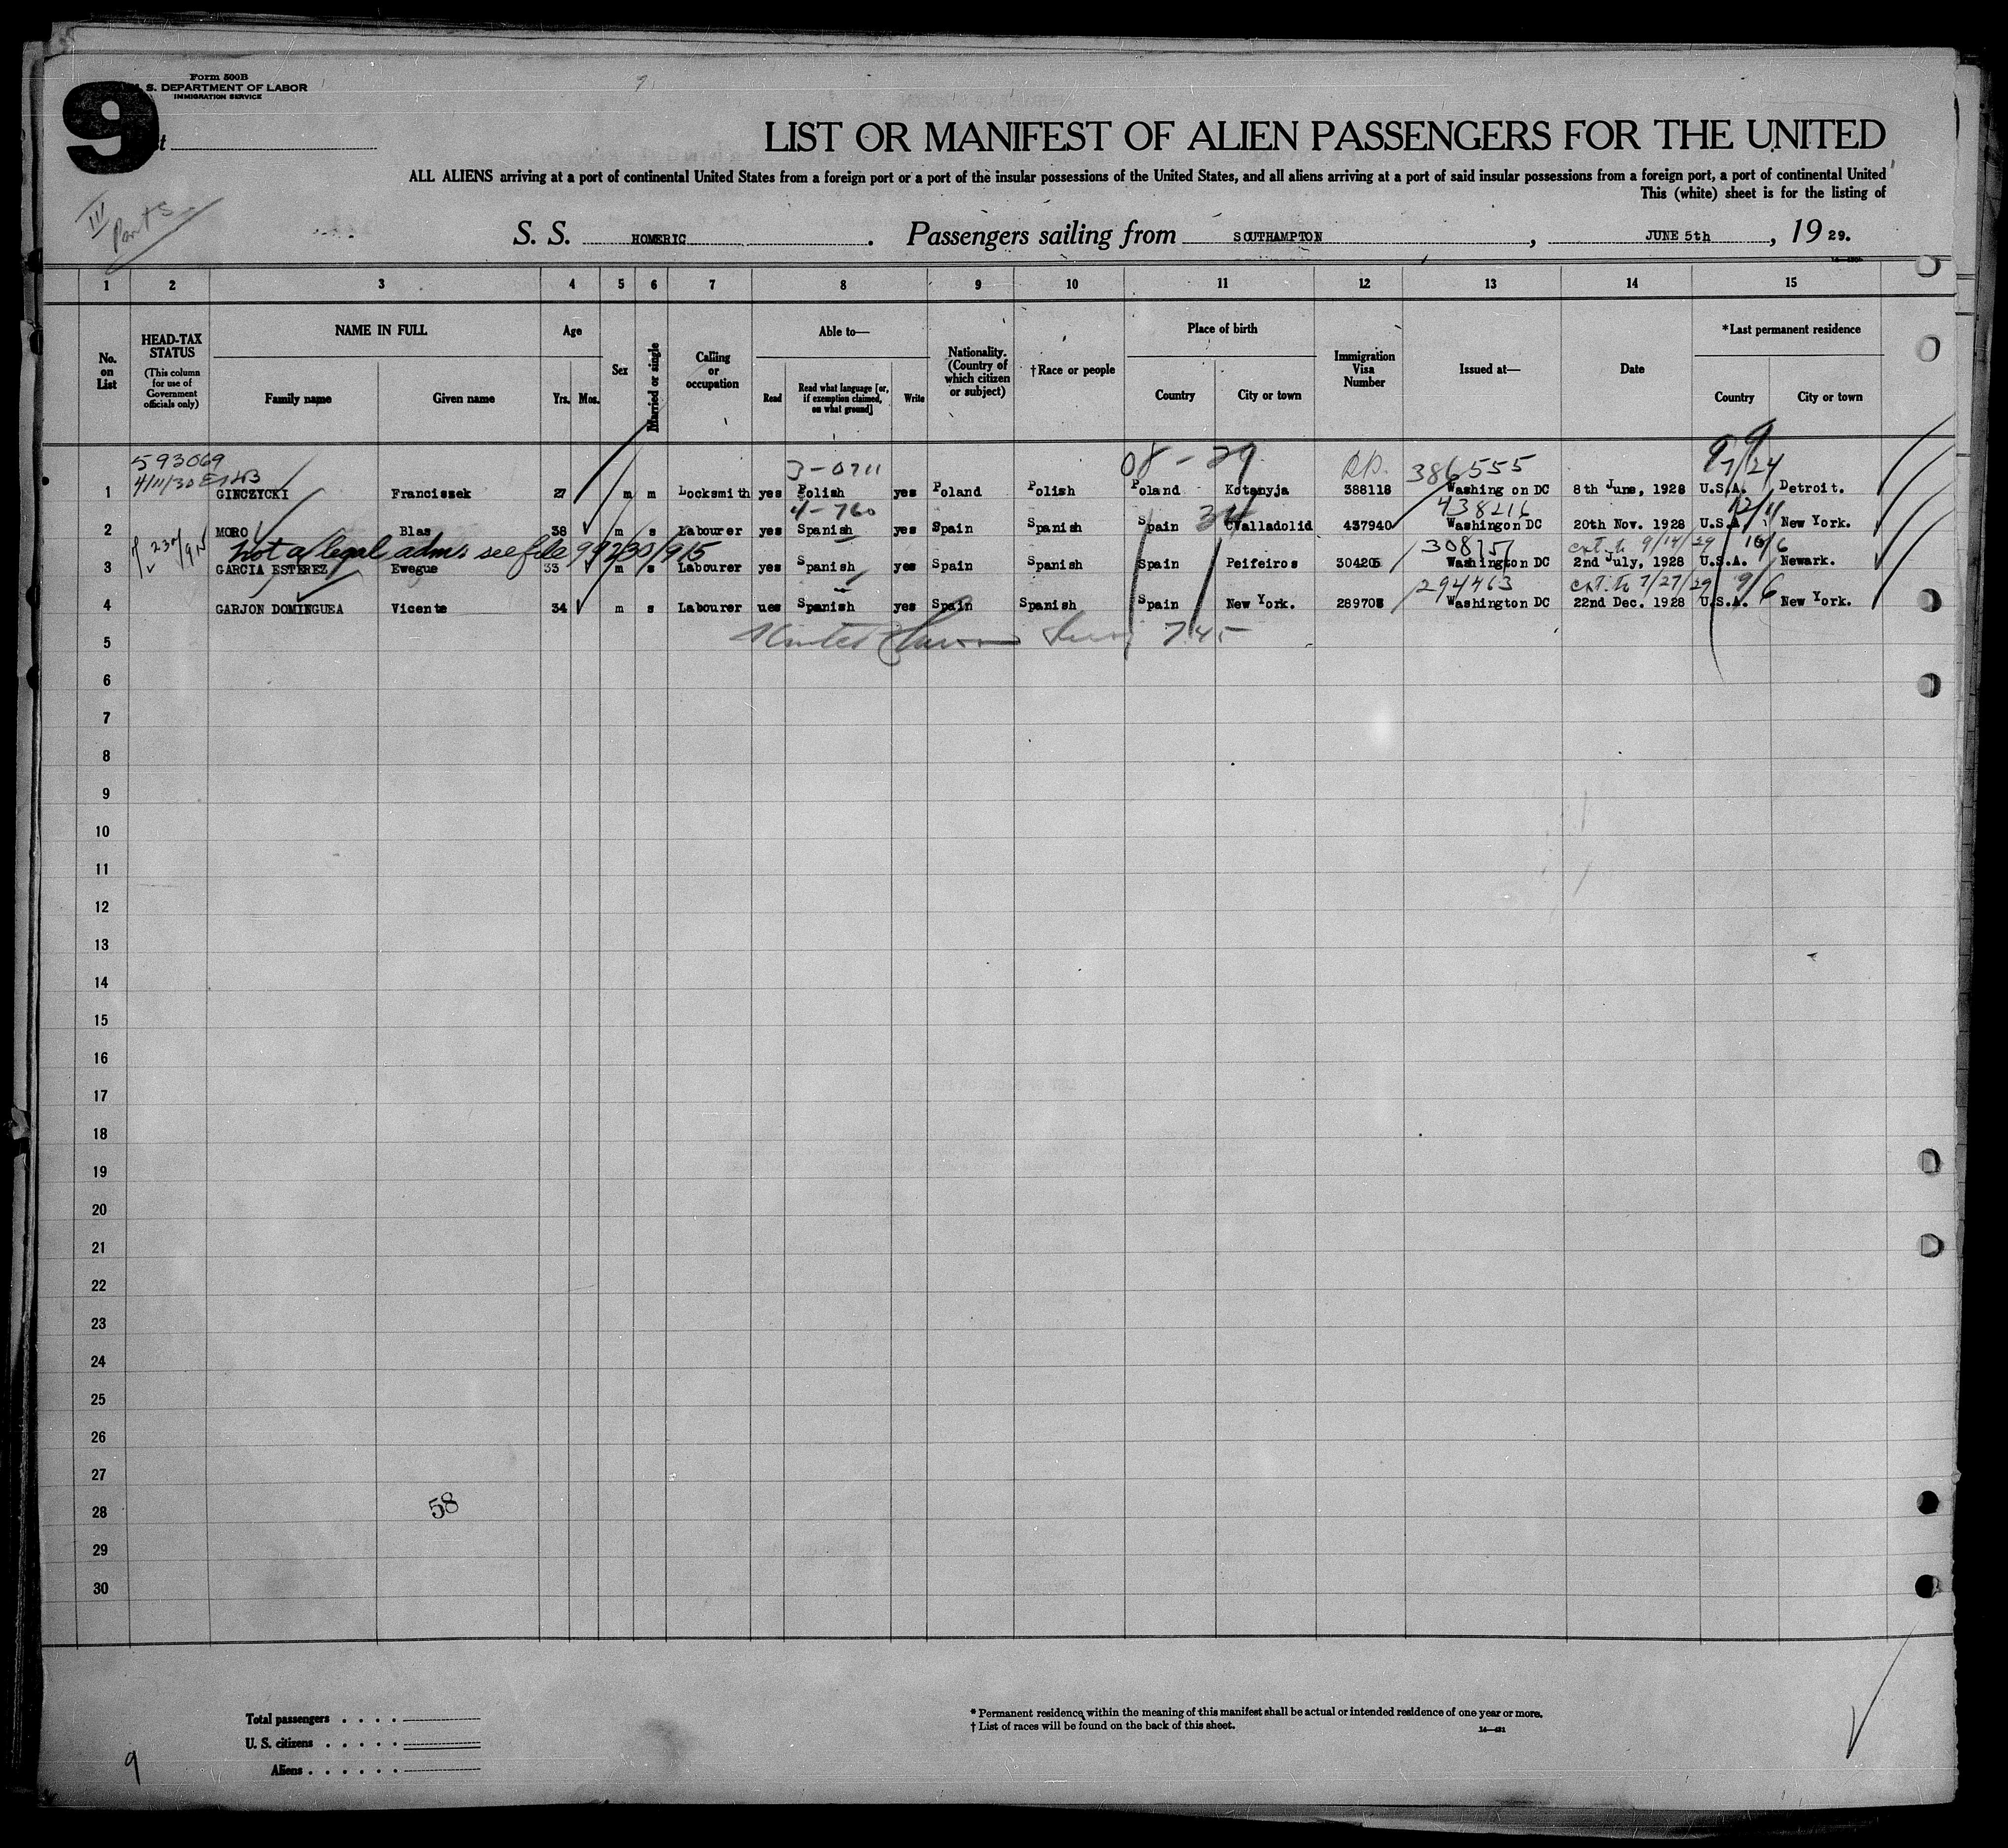 Form 500B
S. DEPARTMENT OF LABOR
IMMIGRATION SERVICE
9
III
LIST OR MANIFEST OF ALIEN PASSENGERS FOR THE UNITED
ALL ALIENS arriving at a port of continental United States from a foreign port or a port of the insular possessions of the United States, and all aliens arriving at a port of said insular possessions from a foreign port, a port of continental United
This (white) sheet is for the listing of
S. S. HOMERIC. Passengers sailing from SOUTHAMPTON, JUNE 5th, 19 29.
1 2 3 4 5 6 7 8 9 10 11 12 13 14 15
No. on List
HEAD-TAX STATUS
(This column for use of Government officials only)
NAME IN FULL
Family name Given name
Age
Yrs. Mos.
Sex
Married or single
Calling or occupation
Able to—
Read Read what language [or, if exemption claimed, on what ground] Write
Nationality. (Country of which citizen or subject)
†Race or people
Place of birth
Country City or town
Immigration Visa Number
Issued at—
Date
*Last permanent residence
Country City or town
593069 3-0711 08 - 29 386555
4/11/30
1 GINCZYCKI Franciszek 27 m m Locksmith yes Polish yes Poland Polish Poland Kotanyja 388118 Washing on DC 8th June, 1928 U.S.A. Detroit.
4-760 34 438216 12/11
2 MORO Blas 38 m s Labourer yes Spanish yes Spain Spanish Spain CValladolid 437940 Washingon DC 20th Nov. 1928 U.S.A. New York.
not a legal adm. see file 99230/915 ext. to 9/14/29 10/6
3 GARCIA ESTEREZ Ewegue 33 m s Labourer yes Spanish yes Spain Spanish Spain Peifeiros 304205 Washington DC 2nd July, 1928 U.S.A. Newark.
294463 ext. to 7/27/29 9/6
4 GARJON DOMINGUEA Vicente 34 m s Labourer ues Spanish yes Spain Spanish Spain New York. 289708 Washington DC 22nd Dec. 1928 U.S.A. New York.
5
6
7
8
9
10
11
12
13
14
15
16
17
18
19
20
21
22
23
24
25
26
27
28 58
29
30
Total passengers
U. S. citizens
Aliens
* Permanent residence within the meaning of this manifest shall be actual or intended residence of one year or more.
† List of races will be found on the back of this sheet.
9